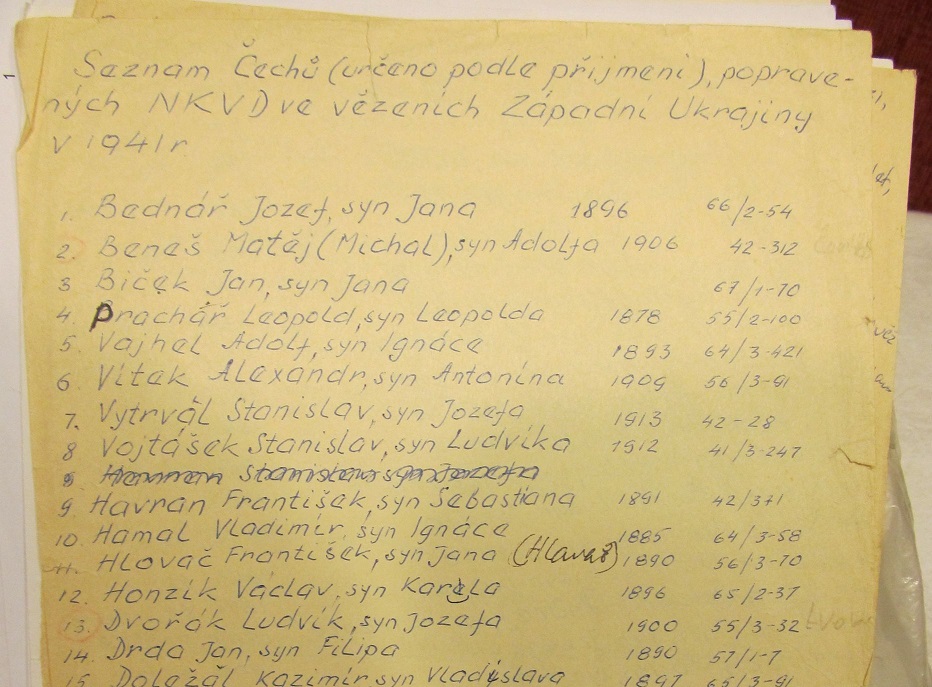 1
Seznam Čechů (určeno podle přijmeni), poprave-
ných NKVD ve vězenich Západni Ukrajiny
v 1941 r
1. Bednář Jozef, syn Jana 1896 66/2-54
2. Beneš Matěj (Michal), syn Adolfa 1906 42-312
3 Biček Jan, syn Jana 67/1-70
4. Prachář Leopold, syn Leopolda 1878 55/2-100
5. Vajhel Adolf, syn Ignáce 1893 64/3-421
6. Vitek Alexandr, syn Antonina 1909 56/3-91
7. Vytrvál Stanislav, syn Jozefa 1913 42-28
8 Vojtášek Stanislav, syn Ludvika 1912 41/3-247
9 Havran František, syn Šebastiana 1891 42/371
10. Hamal Vladimir, syn Ignáce 1885 64/3-58
11. Hlovač František, syn Jana (Hlavač) 1890 56/3-70
12. Honzik Václav, syn Karela 1896 65/2-37
13. Dvořák Ludvik, syn Jozefa 1900 55/3-32
14. Drda Jan, syn Filipa 1890 57/1-7
15 Doležál Kazimir, syn Vladyslava 1897 65/3-91